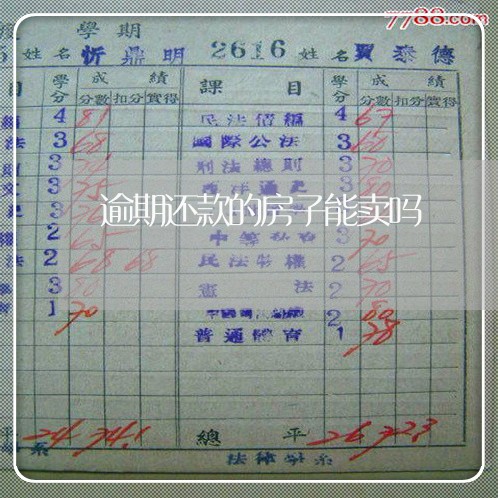 7788.com
學期
姓名 忻鼎明 2616 姓名 賈泰德
目 學分 成績 課目 學分 成績
分數 扣分 實得 分數 扣分 實得
4 81 民法債編 4 67
法 3 68 國際公法 3 60
3 刑法總則 3 70
3 75 西洋通史 3 80
逾期还款的房子能卖吗
2 65 3 70
法 2 68 68 民法物權 2 65
3 80 憲法 2 70
1 70 2 80
普通體育 1 78
平 24 74.1 總平 26 72.3
系 法律學系